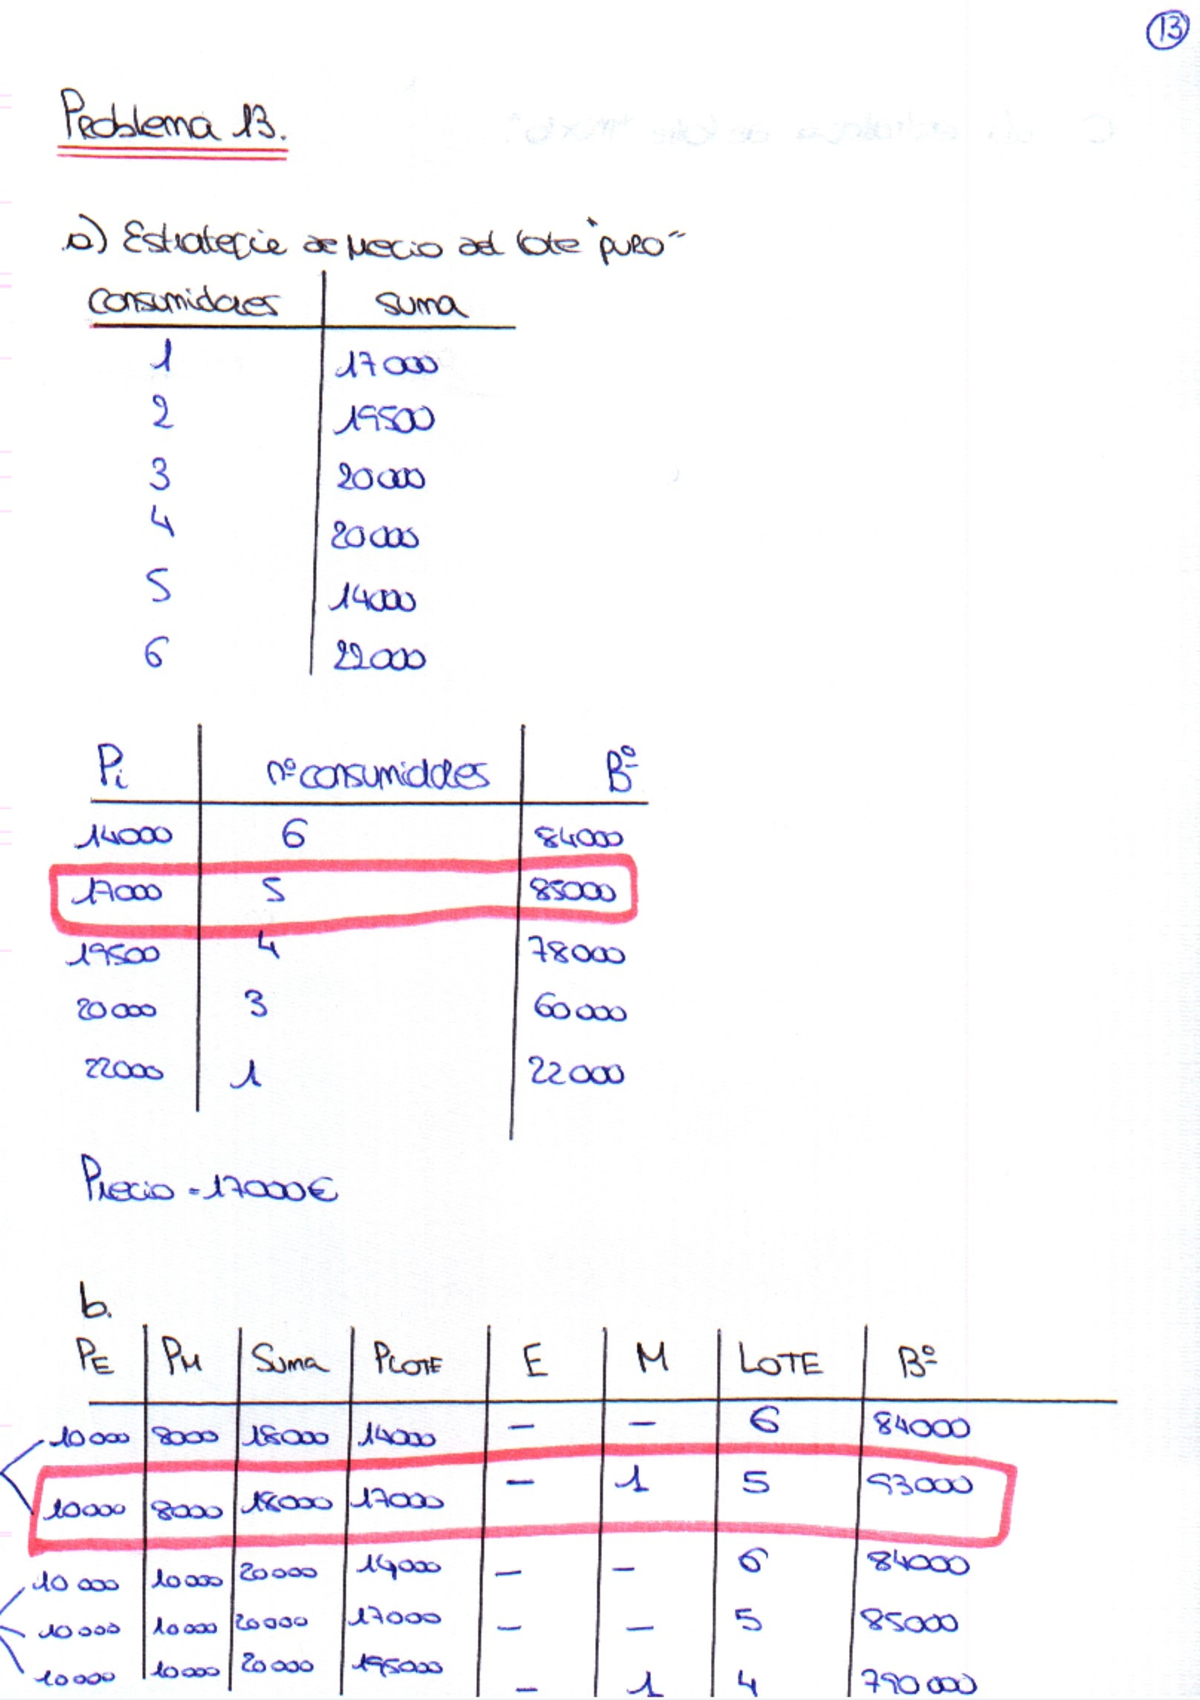 13
Problema 13.
a) Estrategie de precio del lote "puro"
consumidores suma
1 17000
2 19500
3 20000
4 20000
5 14000
6 22000
Pi nº consumidores Bº
14000 6 84000
17000 5 85000
19500 4 78000
20000 3 60000
22000 1 22000
Precio = 17000€
b.
PE PM Suma PLOTE E M LOTE Bº
10000 8000 18000 14000 – – 6 84000
10000 8000 18000 17000 – 1 5 93000
10000 10000 20000 14000 – – 6 84000
10000 10000 20000 17000 – – 5 85000
10000 10000 20000 195000 – 1 4 790000